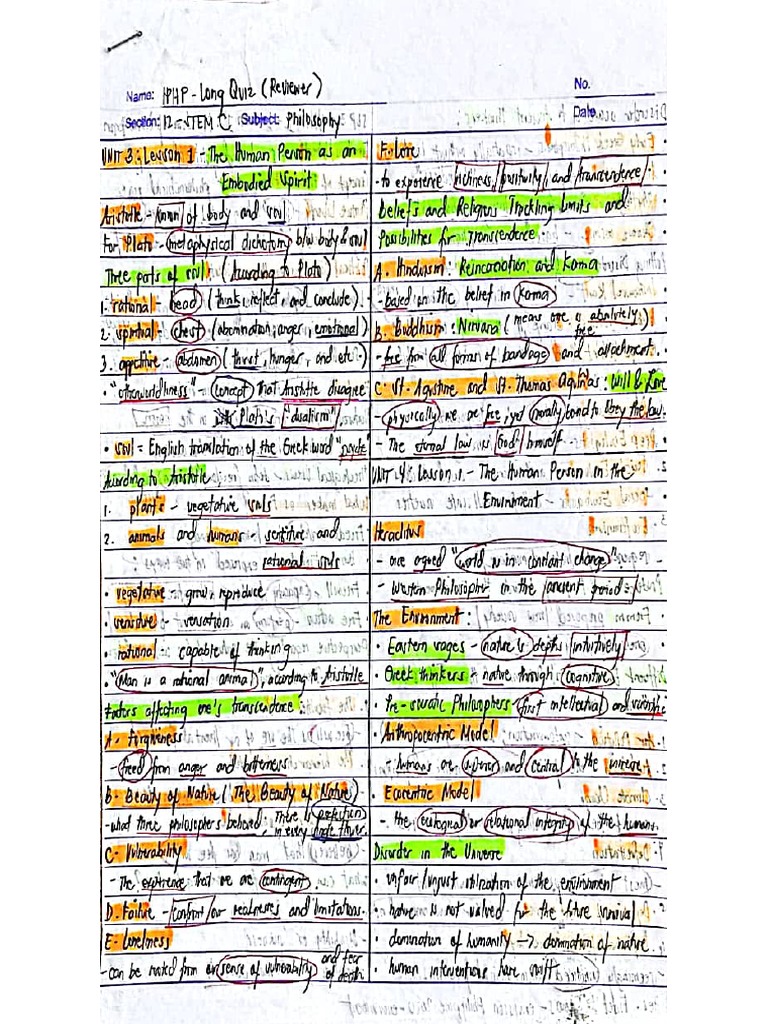 Name: IPHP - Long Quiz (Reviewer)
No.
Section: 12 - STEM C Subject: Philosophy
Date
UNIT 3: Lesson 1 - The Human Person as an
Embodied Spirit
Aristotle - Union of body and soul
For Plato - metaphysical dichotomy b/w body & soul
Three parts of soul: (According to Plato)
1. rational - head (think, reflect, and conclude).
2. spiritual - chest (abomination, anger, emotional)
3. appetitive - abdomen (thirst, hunger, and etc.)
• "otherworldliness" - concept that Aristotle disagree
in the Plato's "dualism"
• soul = English translation of the Greek word "psyche"
According to Aristotle
1. plants - vegetative souls
2. animals and humans: sensitive and
rational souls
• vegetative - grow, reproduce
• sensitive - sensation
• rational - capable of thinking
• "Man is a rational animal", according to Aristotle
Factors affecting one's transcendence:
A. Forgiveness
- freed from anger and bitterness
B. Beauty of Nature (The Beauty of Nature)
- what three philosophers behaved, There is perfection
in every
C. Vulnerability
- The experience that we are contingent
D. Failure - Confront our weaknesses and limitations.
E. Loneliness
- can be rooted from our sense of vulnerability and fear
of death
F. Love
- to experience richness, positivity, and transcendence
Beliefs and Religions Tracking Limits and
Possibilities for Transcendence
A. Hinduism: Reincarnation and Karma
- based on the belief in Karma
B. Buddhism: Nirvana (means one is absolutely)
free
- free from all forms of bondage and attachment
C. St. Agustine and St. Thomas Aquinas: Will & Love
- physically we are free, yet morally bound to obey the law.
- The eternal law is God himself
UNIT 4: Lesson 1. - The Human Person in the
Environment
Heraclitus
- one agreed "world is in constant change"
- Western Philosopher in the ancient period
The Environment:
• Eastern sages - nature is depths intuitively
• Greek thinkers - nature through cognitive
• Pre-socratic Philosophers - first intellectual and scientific
• Anthropocentric Model
- humans are superior and central to the universe
• Ecocentric Model
- the ecological or relational integrity of the humans
Disorder in the Universe
• unfair/unjust utilization of the environment
• nature is not valued for the future survival
• domination of humanity -> domination of nature.
• human interventions have